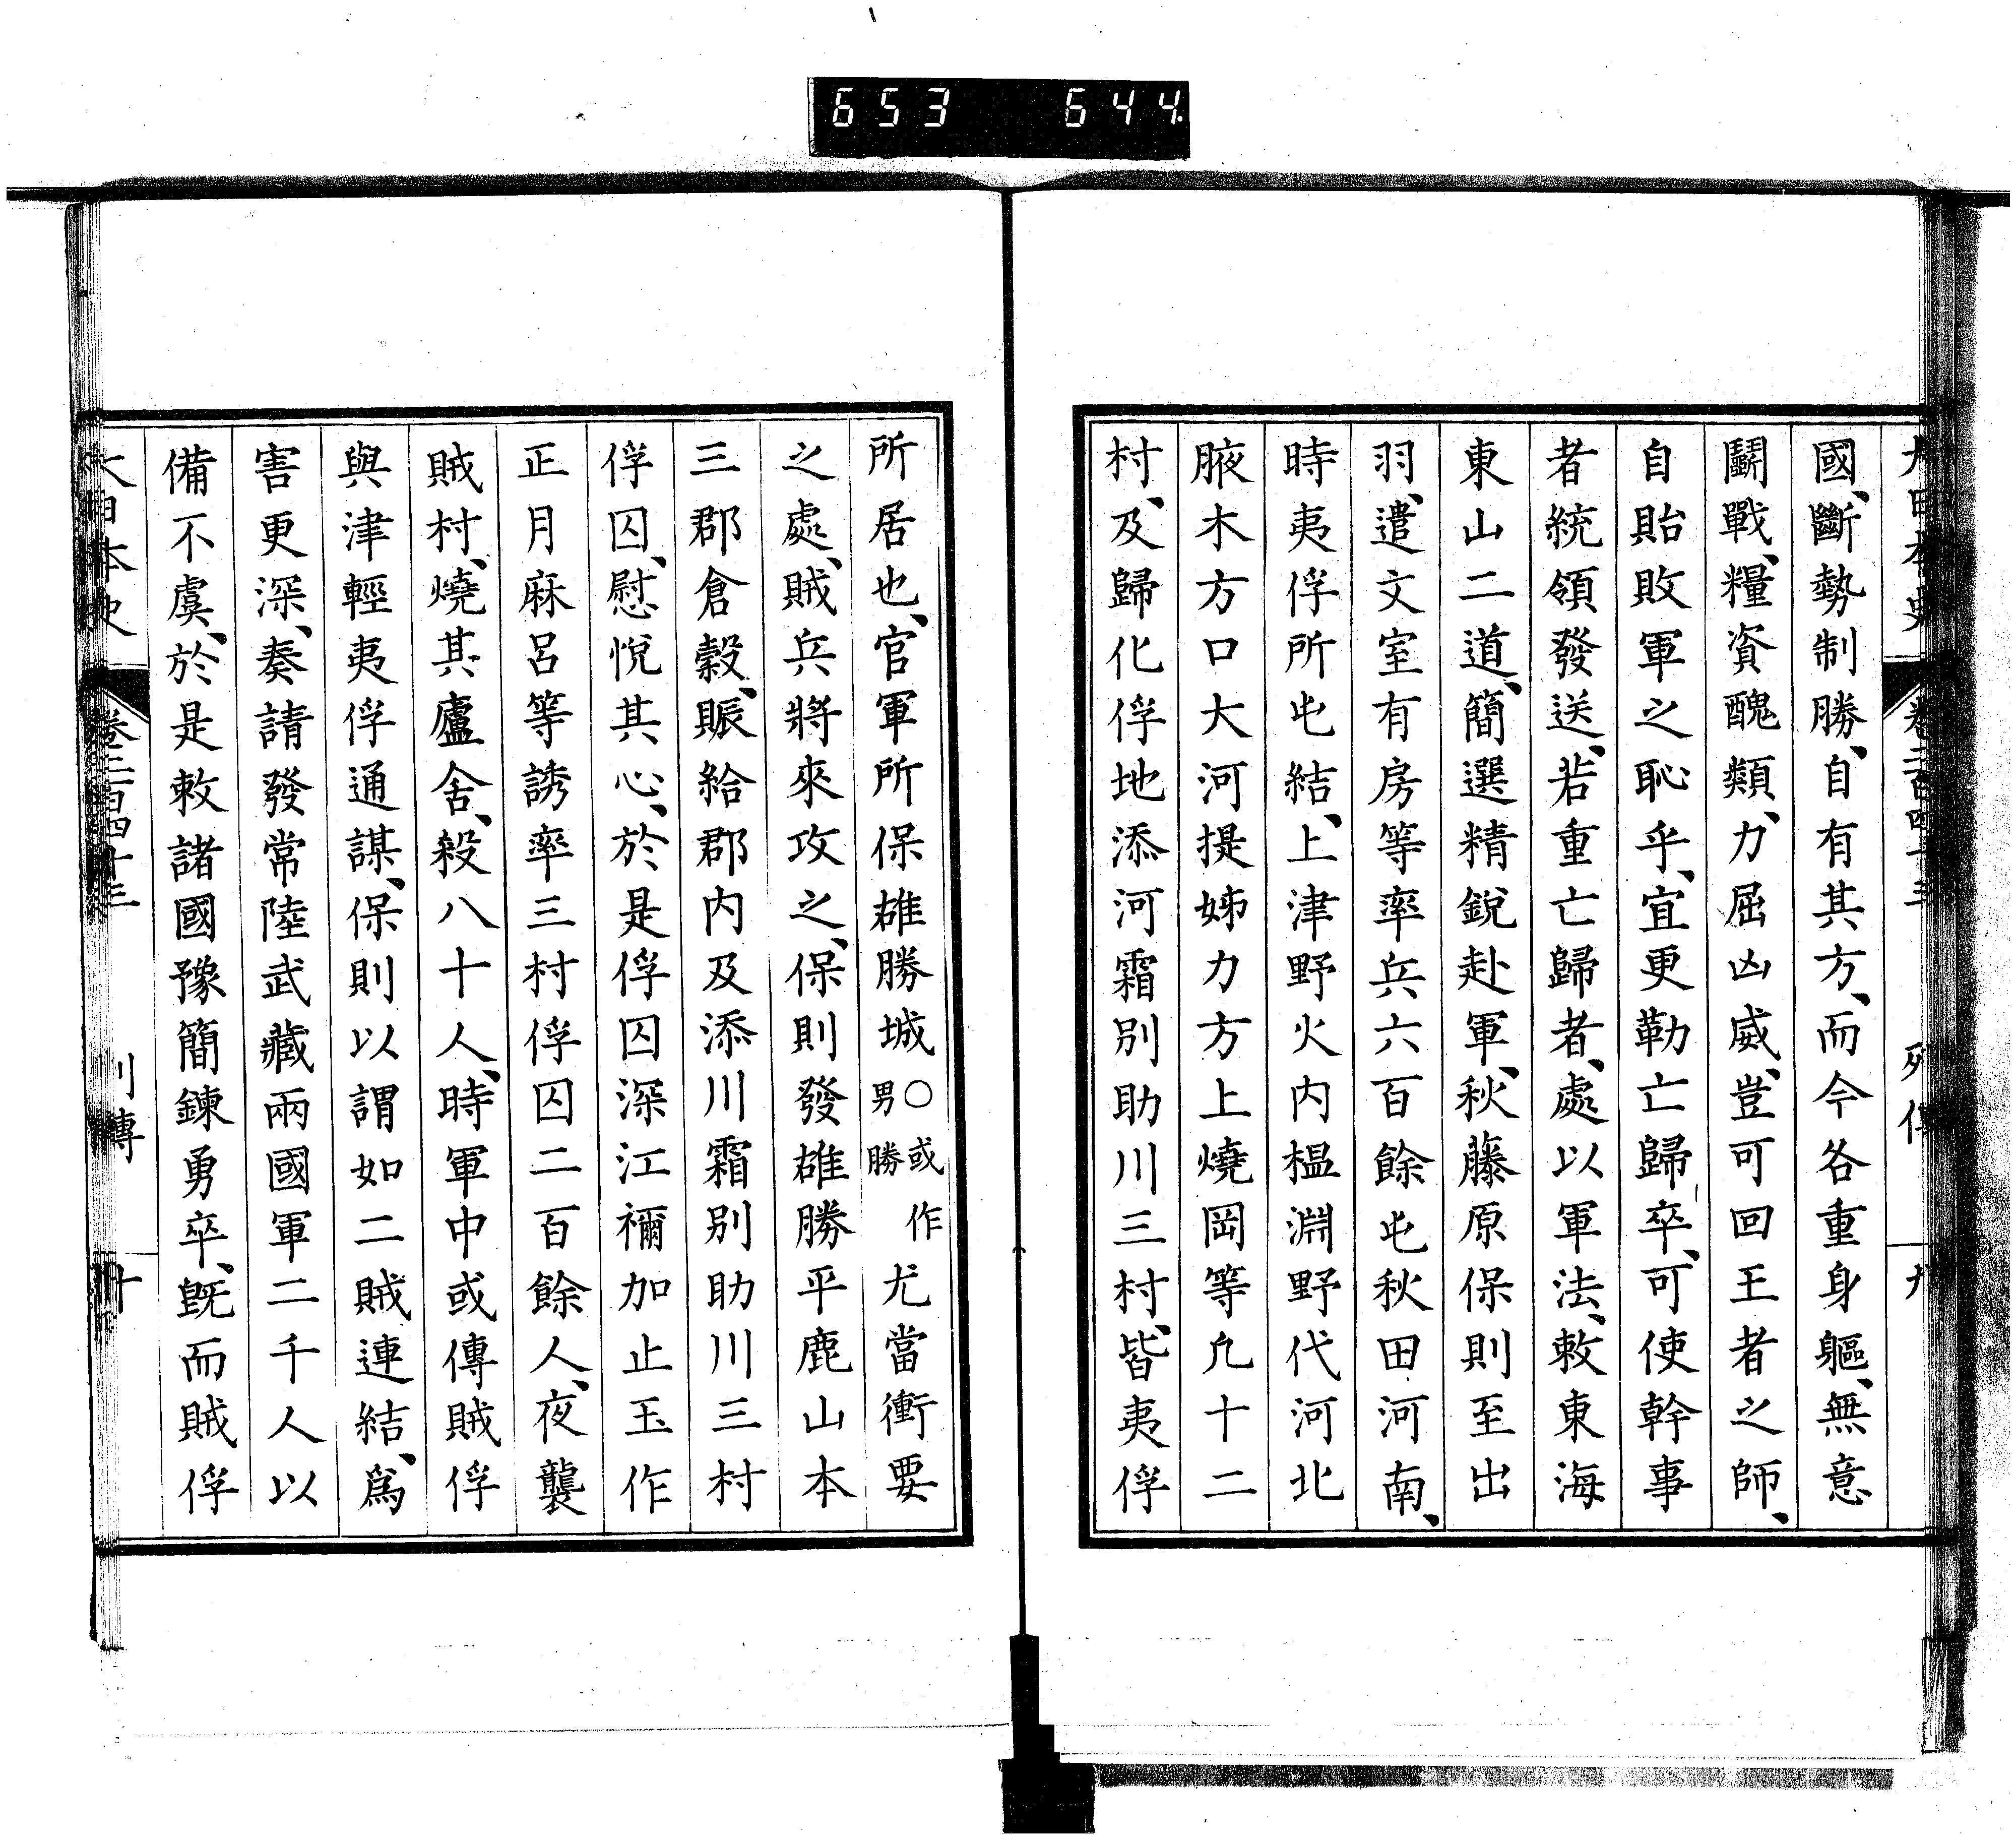 653 644
大日本史 卷二百四十三 列傳 九
國、斷勢制勝、自有其方、而今各重身軀、無意
鬭戰、糧資醜類、力屈凶威、豈可回王者之師、
自貽敗軍之恥乎、宜更勒亡歸卒、可使幹事
者統領發送、若重亡歸者、處以軍法、敕東海
東山二道、簡選精銳赴軍、秋、藤原保則至出
羽、遣文室有房等率兵六百餘屯秋田河南、
時夷俘所屯結、上津野火内榲淵野代河北
腋木方口大河提姊力方上燒岡等凡十二
村、及歸化俘地添河霜別助川三村、皆夷俘
所居也、官軍所保雄勝城○或作男勝尤當衝要
之處、賊兵將來攻之、保則發雄勝平鹿山本
三郡倉穀、賑給郡内及添川霜別助川三村
俘囚、慰悅其心、於是俘囚深江禰加止玉作
正月麻呂等誘率三村俘囚二百餘人、夜襲
賊村、燒其廬舍、殺八十人、時軍中或傳賊俘
與津輕夷俘通謀、保則以謂如二賊連結、爲
害更深、奏請發常陸武藏兩國軍二千人以
備不虞、於是敕諸國豫簡鍊勇卒、旣而賊俘
大日本史 卷二百四十三 列傳 十